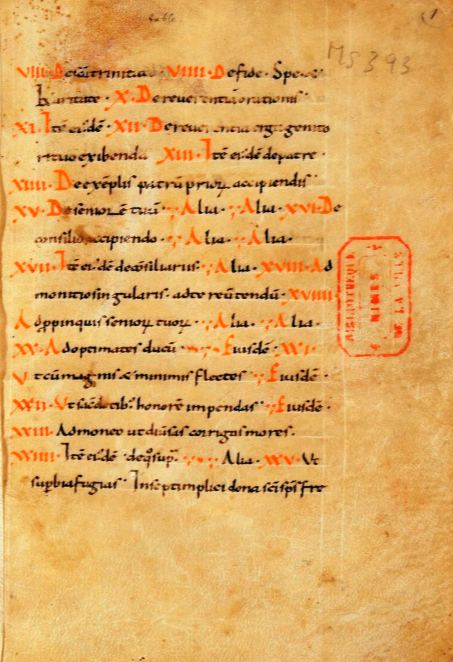 table
MS 393
VIII. De sca trinitate VIIII. De fide. Spe. &
karitate. X. De reverentia orationis
XI. Ite eiusde. XII. De reverentia erga genito
ri tuo exibenda XIII. Ite eiusde de patre.
XIIII. De exeplis patru prior accipiendis
XV. De seniore tuu. Alia. Alia. XVI. De
consilio accipiendo. Alia. Alia.
XVII. Ite eiusde de cosiliarus. Alia. XVIII. Ad
monitio singularis. ad te reu tendu. XVIIII.
Ad ppinquis senior tuor. Alia. Alia.
XX. Ad optimates ducu. Eiusde. XXI.
Ut cu magnis & minimis flectes. Eiusde.
XXII. Ut sacerdotib' honore impendas. Eiusde.
XXIII. Admoneo ut diusis corrigas mores.
XXIIII. Ite eiusde de qo sup. Alia. XXV. Ut
supbia fugias. In septimplici dona sci sps fre
BIBLIOTHEQUE
DE LA VILLE
NIMES